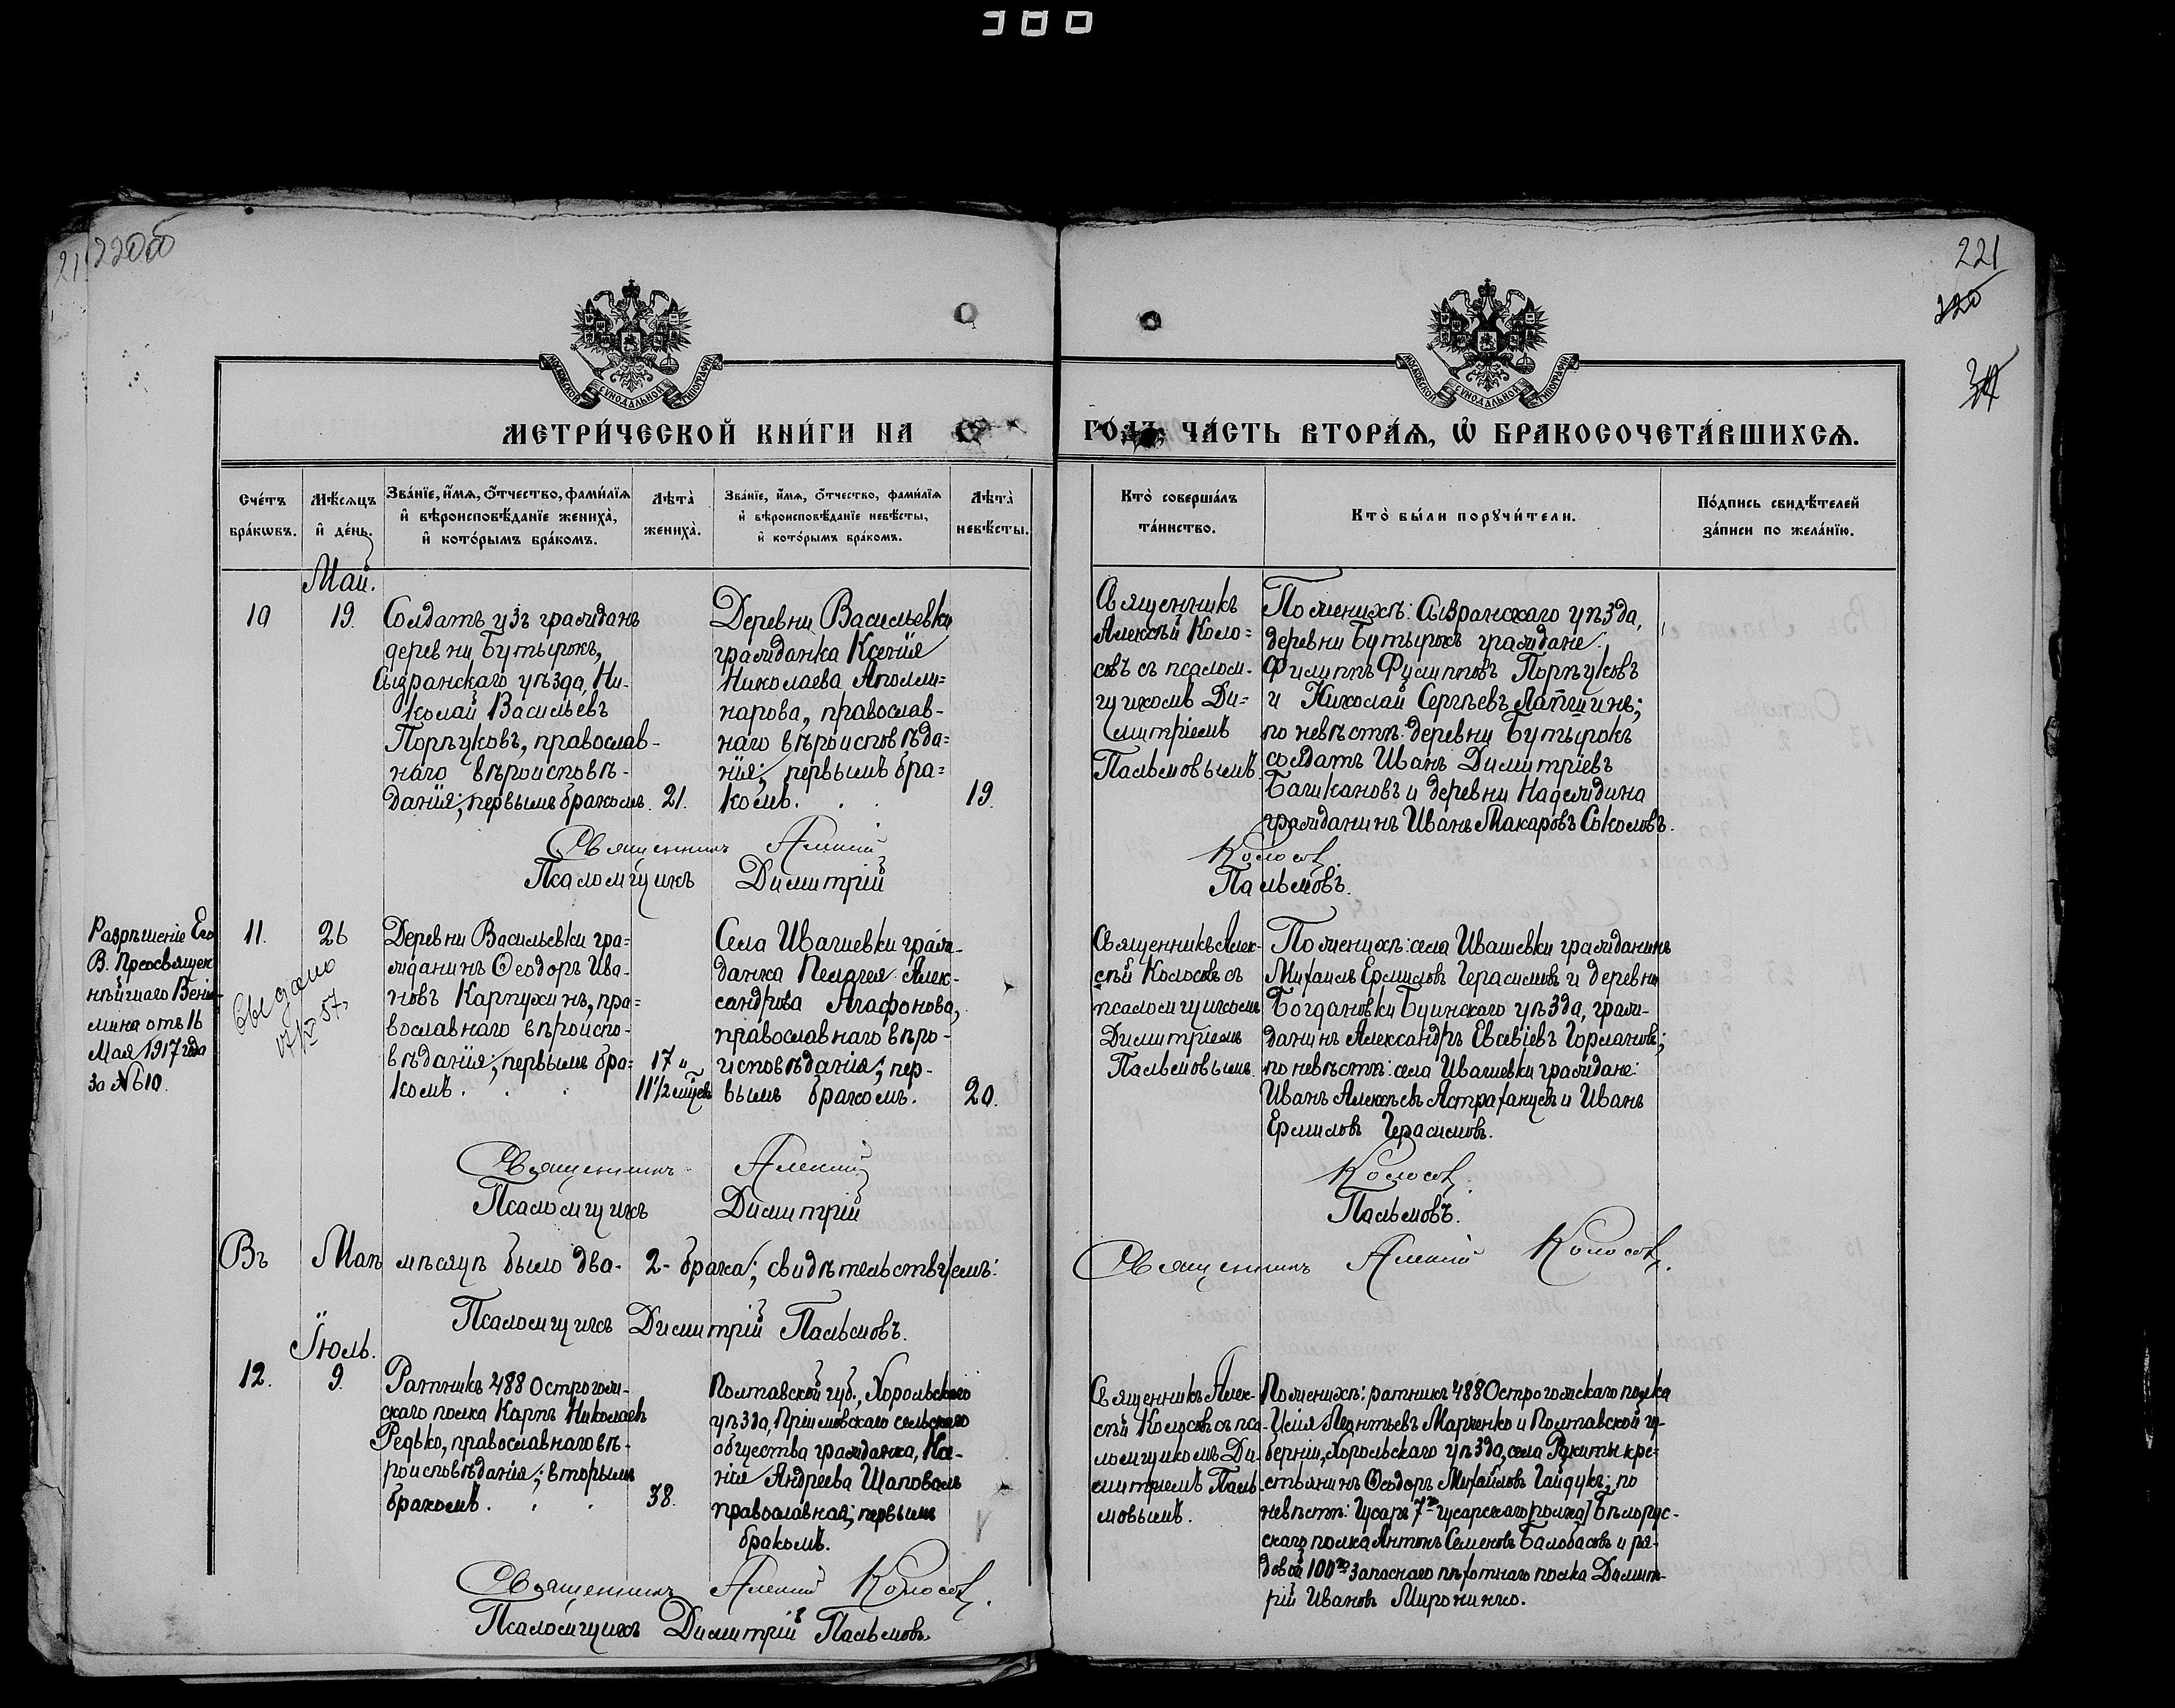 220об
21
221
220
МОСКОВСКОЙ СУНОДАЛЬНОЙ ТИПОГРАФІИ
МОСКОВСКОЙ СУНОДАЛЬНОЙ ТИПОГРАФІИ
МЕТРИ́ЧЕСКОЙ КНИ́ГИ НА
ГО́ДЪ, ЧА́СТЬ ВТОРА́Ѧ, Ѡ҆ БРАКОСОЧЕТА́ВШИХСѦ.
Сче́тъ
бра́кωвъ.
Мѣ́сѧцъ
и҆ де́нь.
Зва́нїе, и҆́мѧ, ѻ҆́тчество, фами́лїѧ
и҆ вѣроисповѣ́данїе жениха̀,
и҆ кото́рымъ бра́комъ.
Лѣта̀
жениха̀.
Зва́нїе, и҆́мѧ, ѻ҆́тчество, фами́лїѧ
и҆ вѣроисповѣ́данїе невѣ́сты,
и҆ кото́рымъ бра́комъ.
Лѣта̀
невѣ́сты.
Кто̀ соверша́лъ
та́инство.
Кто̀ бы́ли порꙋчи́тели.
По́дпись свидѣ́телей
за́писи по жела́нїю.
Май.
10
19.
Солдатъ изъ гражданъ
деревни Бутырокъ,
Сызранскаго уѣзда, Ни-
колай Васильевъ
Порѣуковъ, православ-
наго вѣроисповѣ-
данія; первымъ бракомъ.
21.
Деревни Васильевки
гражданка Ксенія
Николаева Аполли=
нарова, православ-
наго вѣроисповѣда=
нія; первымъ бра=
комъ.
19.
Священникъ
Алексѣй Коло=
совъ съ псалом-
щикомъ Ди=
митріемъ
Пальмовымъ.
По женихѣ: Сызранскаго уѣзда,
деревни Бутырокъ граждане:
Филиппъ Филипповъ Порѣуковъ
и Николай Сергѣевъ Лапшинъ;
по невѣстѣ: деревни Бутырокъ
солдатъ Иванъ Димитріевъ
Башкановъ и деревни Надеждина
гражданинъ Иванъ Макаровъ Соколовъ.
Священникъ Алексій Колосовъ.
Псаломщикъ Димитрій Пальмовъ.
Разрѣшеніе Его
В. Преосвящен
нѣйшаго Веніа-
мина отъ 16
Мая 1917 года
за №610.
11.
26
Деревни Васильевки гра=
жданинъ Ѳеодоръ Ива-
новъ Карпухинъ, пра=
вославнаго вѣроиспо-
вѣданія; первымъ бра-
комъ.
17 „
11 1/2 мѣцевъ
Села Ивашевки граж-
данка Пелагея Алек-
сандрова Агафонова,
православнаго вѣро-
исповѣданія; пер-
вымъ бракомъ.
20.
Священникъ Алек-
сѣй Колосовъ съ
псаломщикомъ
Димитріемъ
Пальмовымъ.
По женихѣ: села Ивашевки гражданинъ
Михаилъ Ермиловъ Герасимовъ и деревни
Богдановки Буинскаго уѣзда, граж-
данинъ Александръ Евсевіевъ Горлановъ;
по невѣстѣ: села Ивашевки граждане:
Иванъ Алексѣевъ Астраханцевъ и Иванъ
Ермиловъ Герасимовъ.
Священникъ Алексій Колосовъ.
Псаломщикъ Димитрій Пальмовъ.
Въ Маѣ мѣсяцѣ было два - 2 - брака; свидѣтельствуемъ:
Священникъ Алексій Колосовъ.
Псаломщикъ Димитрій Пальмовъ.
Іюль.
12.
9.
Ратникъ 488 Острогож-
скаго полка Карпъ Николаевъ
Редько, православнаго вѣ-
роисповѣданія; вторымъ
бракомъ.
38.
Полтавской губ., Хорольскаго
уѣзда, Пріимовскаго сельскаго
общества гражданка, Ксе-
нія Андреева Шаповалъ
православная; первымъ
бракомъ.
Священникъ Алек-
сѣй Колосовъ съ пса-
ломщикомъ Ди-
митріемъ Паль-
мовымъ.
По женихѣ: ратникъ 488 Острогожскаго полка
Илія Леонтьевъ Марченко и Полтавской гу-
берніи, Хорольскаго уѣзда, села Ракиты кре-
стьянинъ Ѳеодоръ Михайловъ Гайдукъ; по
невѣстѣ: Гусаръ 7го гусарскаго [полка] Бѣлорус-
скаго полка Антонъ Семеновъ Балобасовъ и ря-
довой 100го запаснаго пѣхотнаго полка Димит-
рій Ивановъ Миронинко.
Священникъ Алексій Колосовъ.
Псаломщикъ Димитрій Пальмовъ